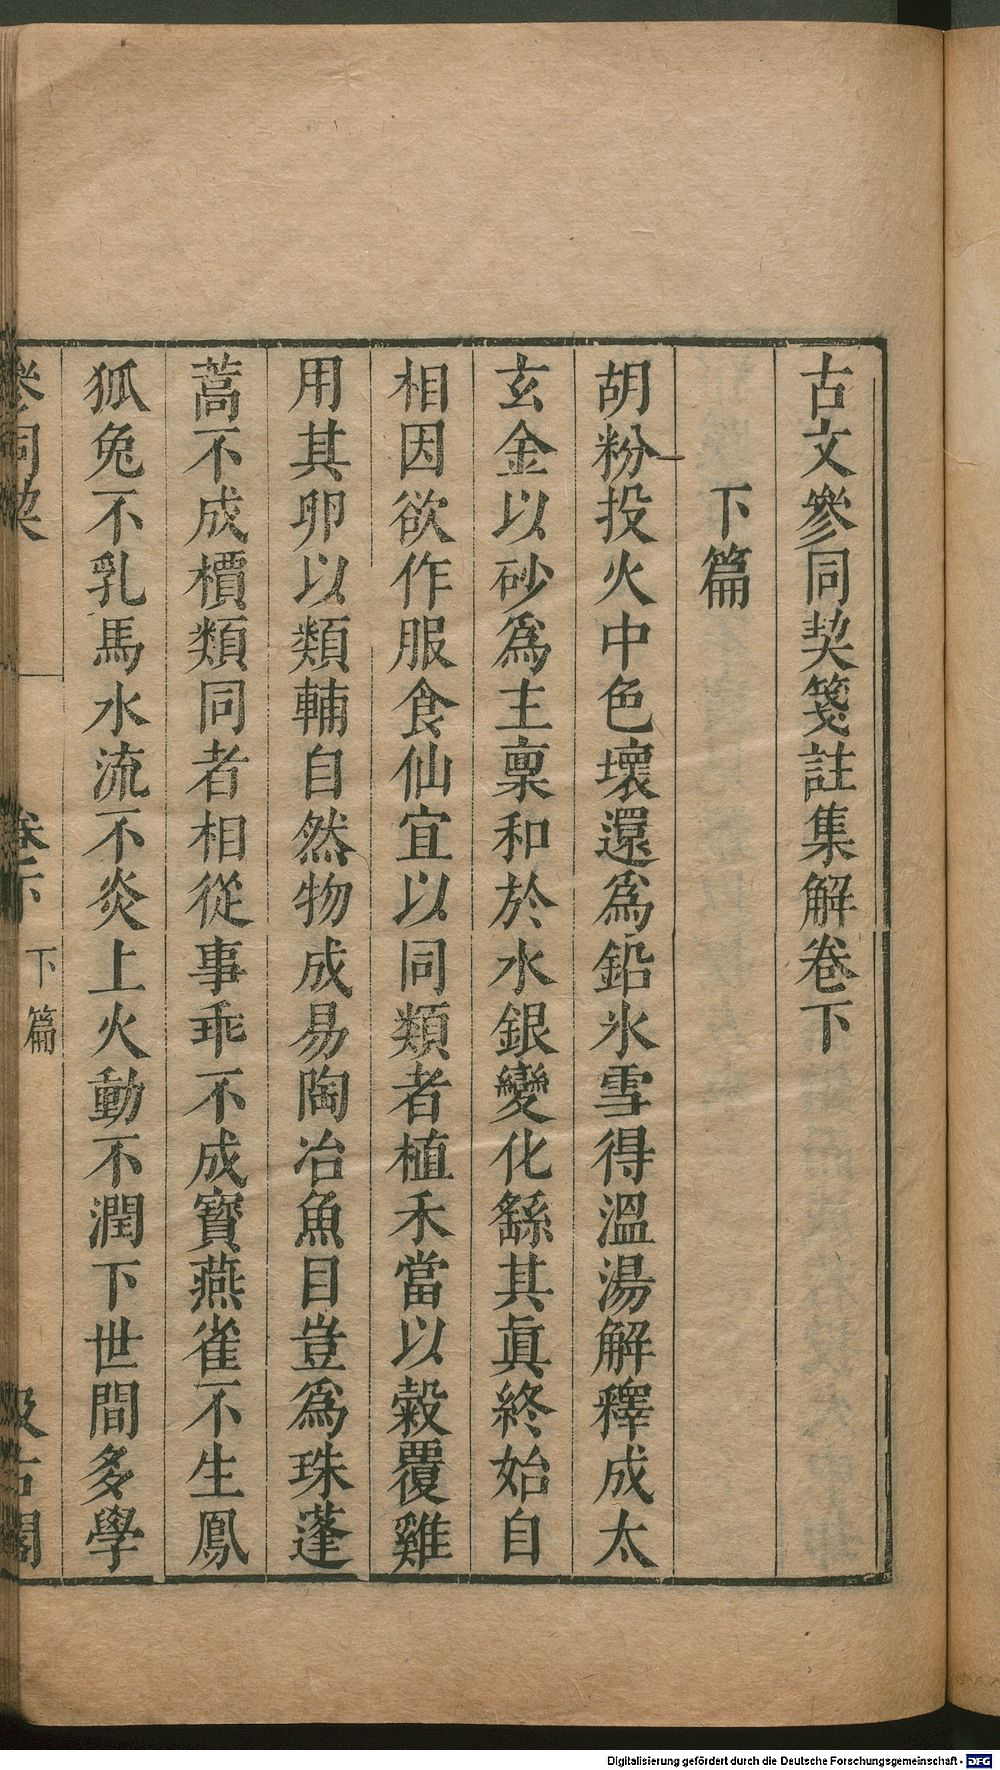 古文參同契箋註集解卷下
下篇
胡粉投火中色壞還爲鉛氷雪得溫湯解釋成太
玄金以砂爲主稟和於水銀變化繇其眞終始自
相因欲作服食仙宜以同類者植禾當以穀覆雞
用其卵以類輔自然物成易陶冶魚目豈爲珠蓬
蒿不成檟類同者相從事乖不成寶燕雀不生鳳
狐兔不乳馬水流不炎上火動不潤下世間多學
參同契
卷下
下篇
汲古閣
Digitalisierung gefördert durch die Deutsche Forschungsgemeinschaft - DFG